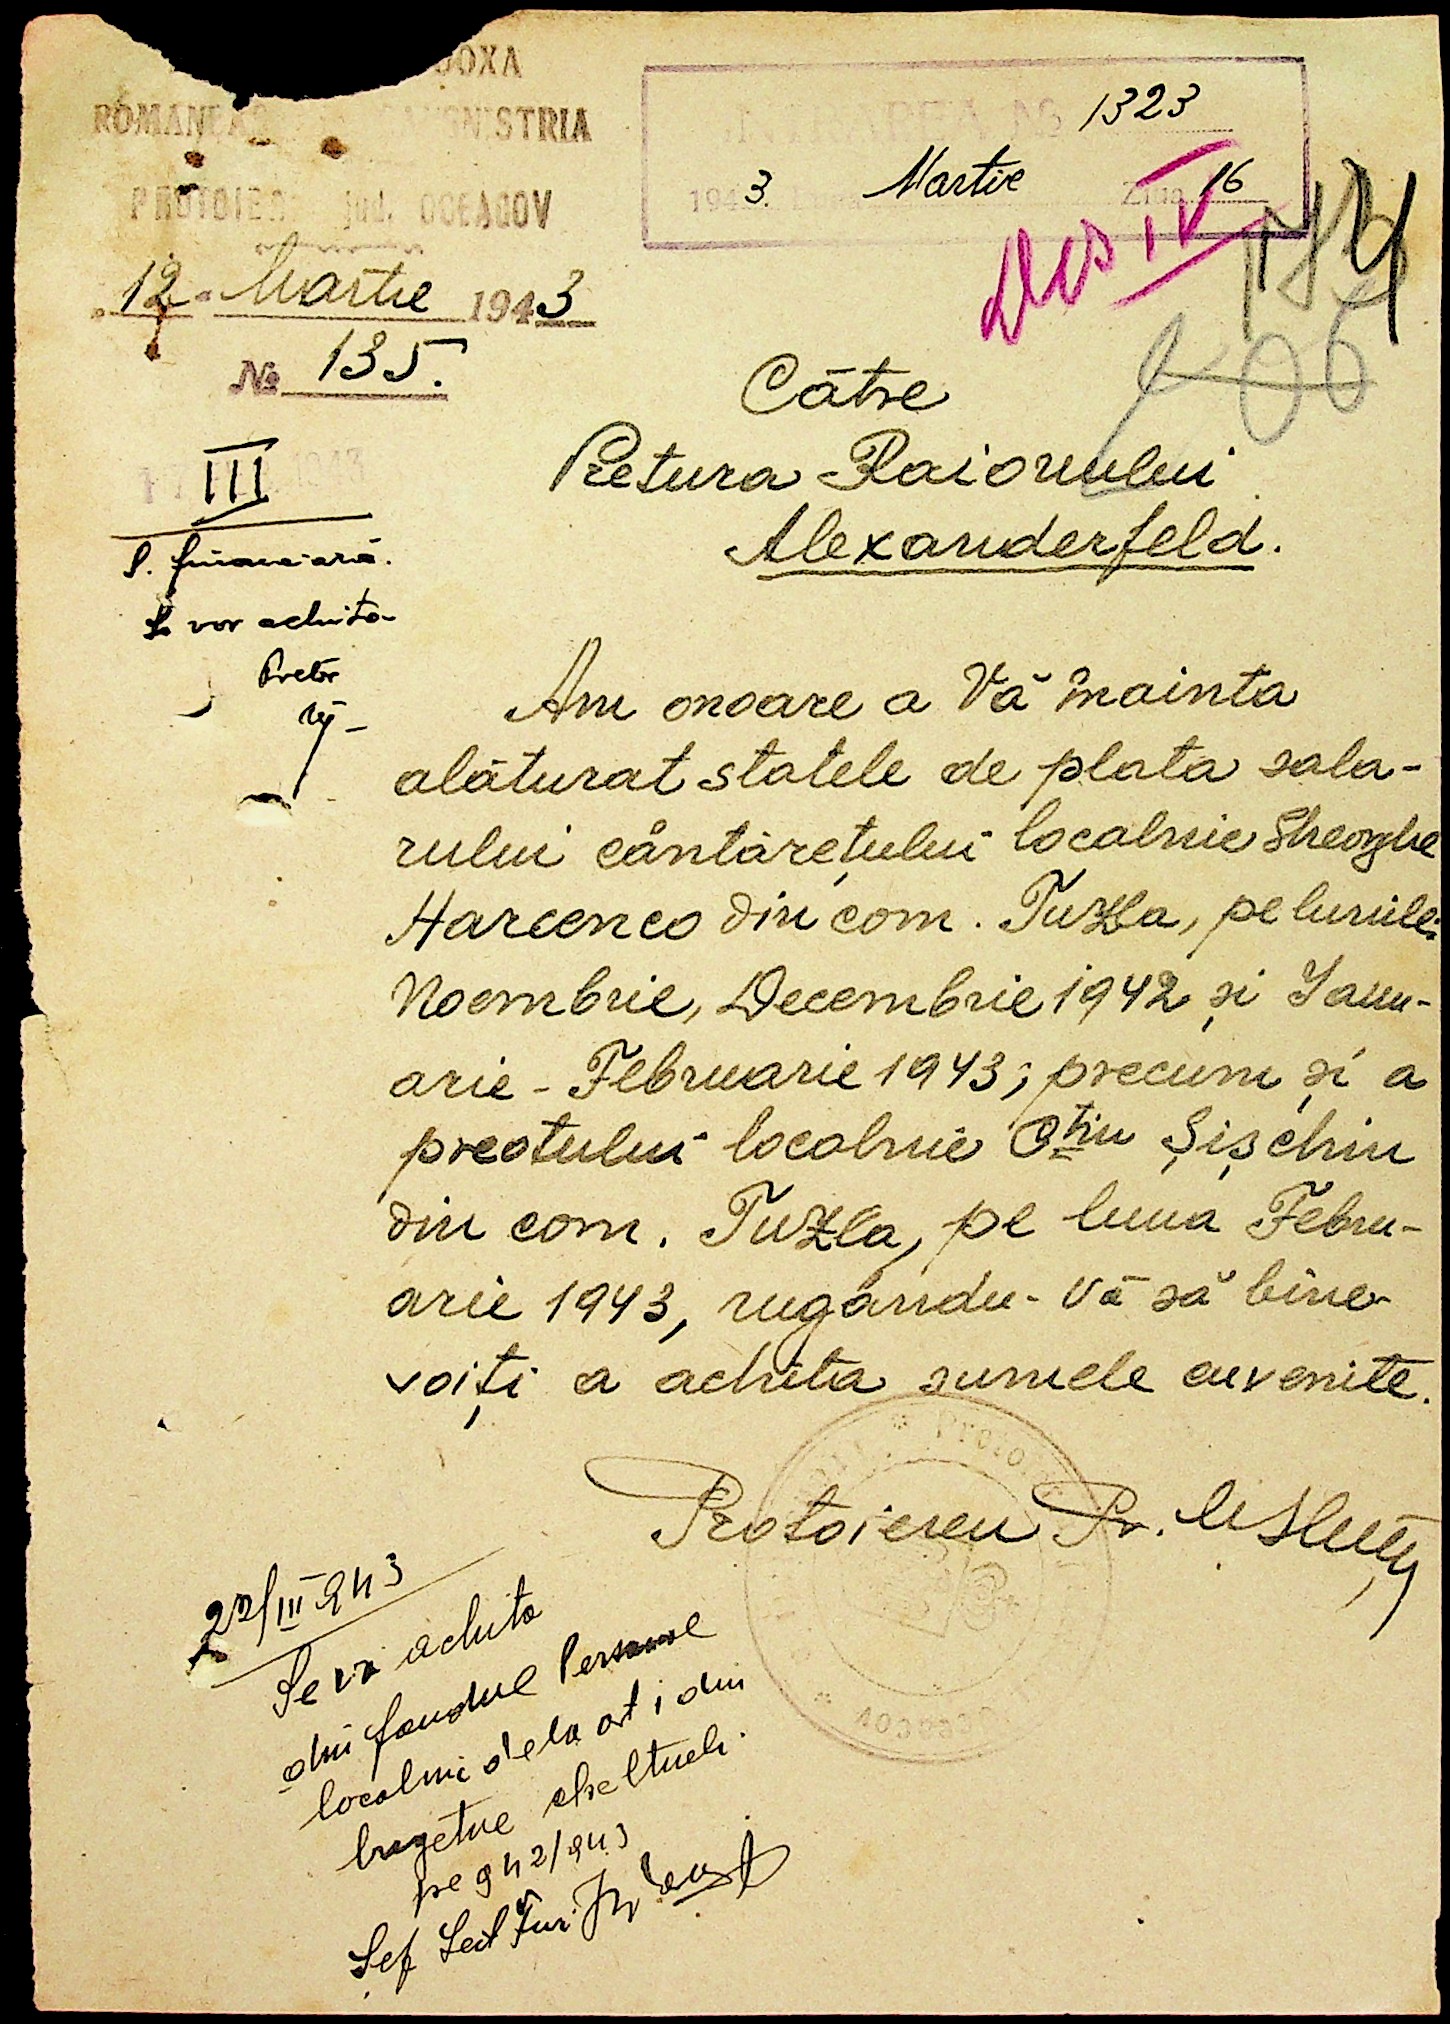 DOXA
ROMANEAS NISTRIA
PROTOIER jud. OCEACOV
12 Martie 1943
№ 135.
№ 1323
1943. Martie Ziua 16
Des IV
206
III
S. financiară.
Se vor achita
Pretor
Către
Pretura Raionului
Alexanderfeld.
Am onoare a Vă înainta
alăturat statele de plata sala-
rului cântărețului localnic Gheorghe
Harcenco din com. Tuzla, pe lunile:
Noembrie, Decembrie 1942 și Ianu-
arie - Februarie 1943; precum și a
preotului localnic Ctin Șișchin
din com. Tuzla, pe luna Febru-
arie 1943, rugându-Vă să bine-
voiți a achita sumele cuvenite.
Protoiereu Pr.
22/III 943
Se va achita
din fondul Personal
localnic dela art 1 din
bugetul cheltueli
pe 942/943
Șef Sect Fin.